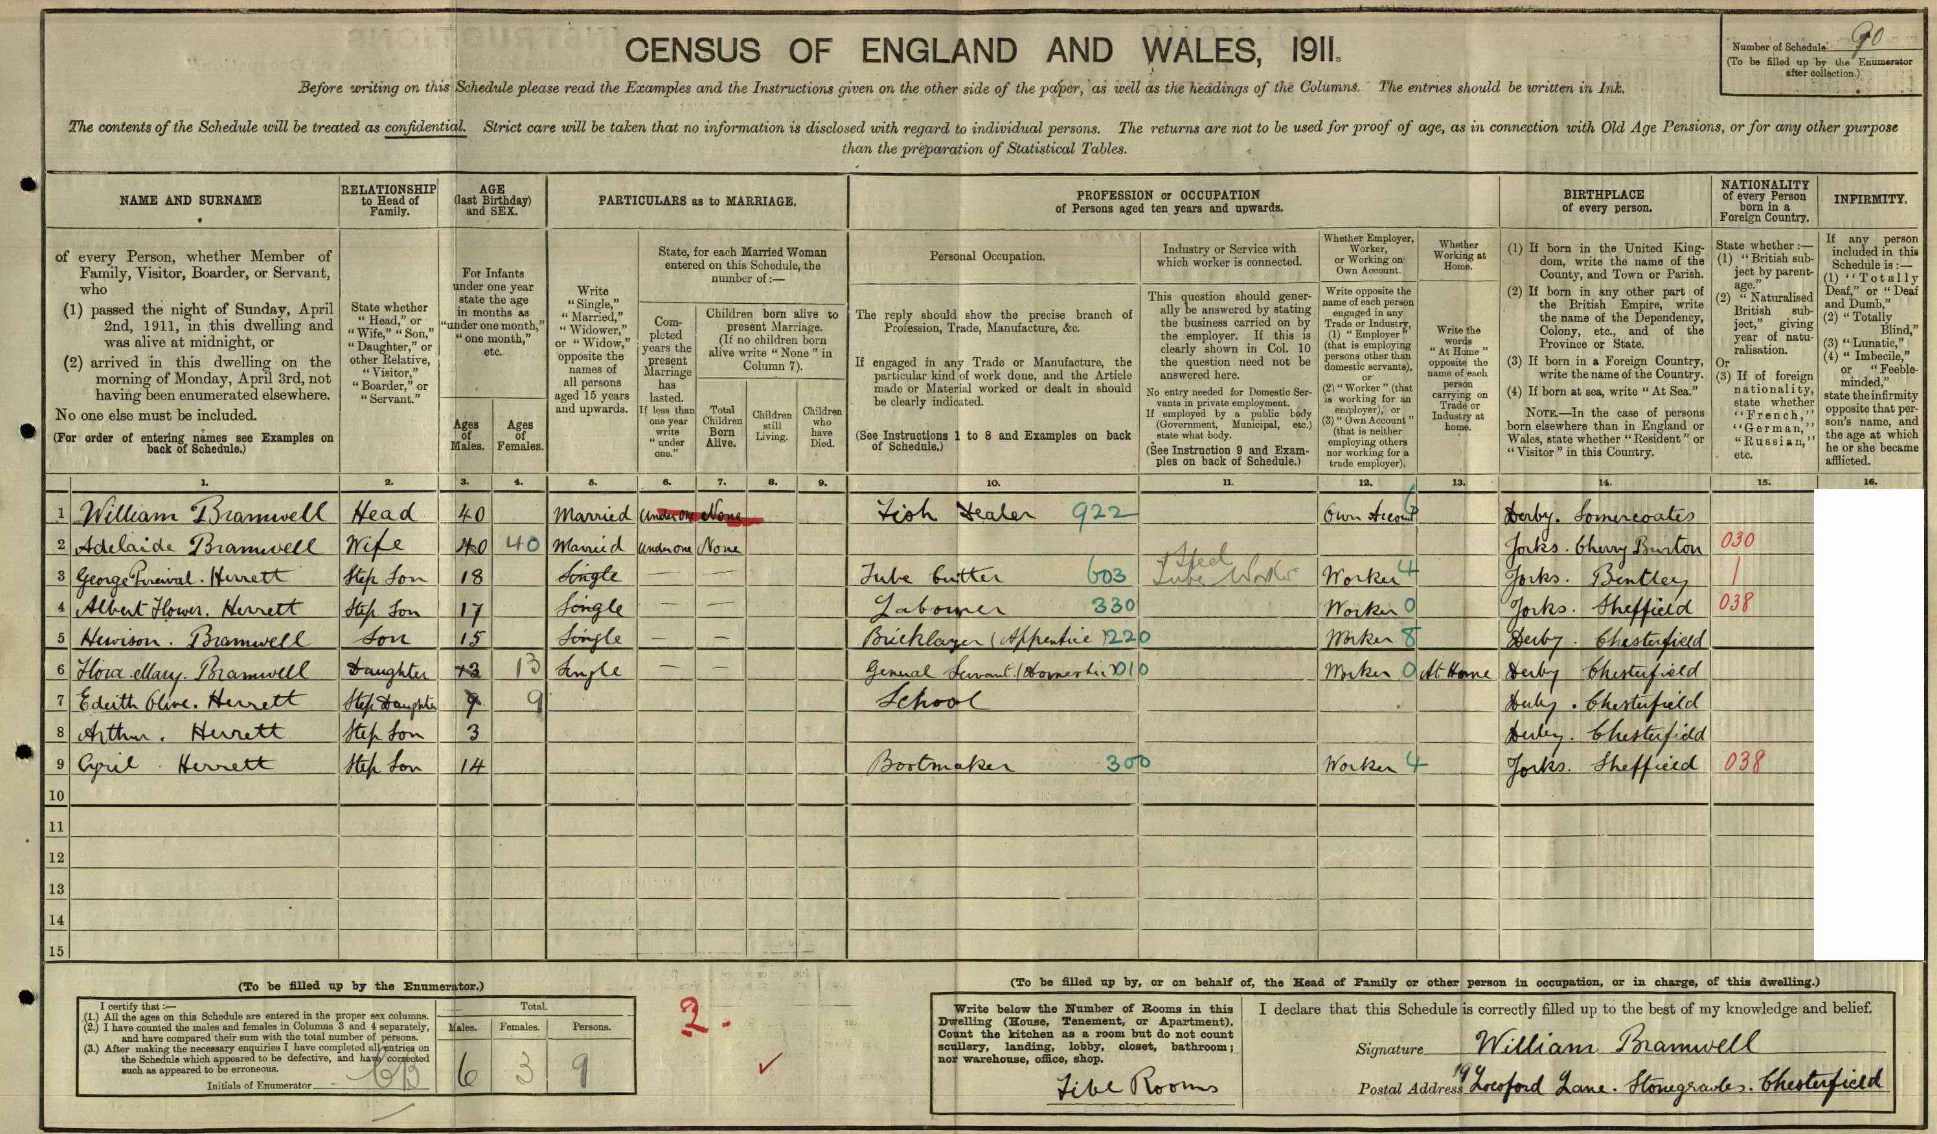 CENSUS OF ENGLAND AND WALES, 1911.
Number of Schedule 90
(To be filled up by the Enumerator after collection.)
Before writing on this Schedule please read the Examples and the Instructions given on the other side of the paper, as well as the headings of the Columns. The entries should be written in Ink.
The contents of the Schedule will be treated as confidential. Strict care will be taken that no information is disclosed with regard to individual persons. The returns are not to be used for proof of age, as in connection with Old Age Pensions, or for any other purpose
than the preparation of Statistical Tables.
NAME AND SURNAME
of every Person, whether Member of
Family, Visitor, Boarder, or Servant,
who
(1) passed the night of Sunday, April
2nd, 1911, in this dwelling and
was alive at midnight, or
(2) arrived in this dwelling on the
morning of Monday, April 3rd, not
having been enumerated elsewhere.
No one else must be included.
(For order of entering names see Examples on
back of Schedule.)
RELATIONSHIP
to Head of
Family.
State whether
"Head," or
"Wife," "Son,"
"Daughter," or
other Relative,
"Visitor,"
"Boarder," or
"Servant."
AGE
(last Birthday)
and SEX.
For Infants
under one year
state the age
in months as
"under one month,"
"one month,"
etc.
Ages
of
Males.
Ages
of
Females.
PARTICULARS as to MARRIAGE.
Write
"Single,"
"Married,"
"Widower,"
or "Widow,"
opposite the
names of
all persons
aged 15 years
and upwards.
State, for each Married Woman
entered on this Schedule, the
number of:—
Com-
pleted
years the
present
Marriage
has
lasted.
If less than
one year
write
"under
one."
Children born alive to
present Marriage.
(If no children born
alive write "None" in
Column 7).
Total
Children
Born
Alive.
Children
still
Living.
Children
who
have
Died.
PROFESSION or OCCUPATION
of Persons aged ten years and upwards.
Personal Occupation.
The reply should show the precise branch of
Profession, Trade, Manufacture, &c.
If engaged in any Trade or Manufacture, the
particular kind of work done, and the Article
made or Material worked or dealt in should
be clearly indicated.
(See Instructions 1 to 8 and Examples on back
of Schedule.)
Industry or Service with
which worker is connected.
This question should gener-
ally be answered by stating
the business carried on by
the employer. If this is
clearly shown in Col. 10
the question need not be
answered here.
No entry needed for Domestic Ser-
vants in private employment.
If employed by a public body
(Government, Municipal, etc.)
state what body.
(See Instruction 9 and Exam-
ples on back of Schedule.)
Whether Employer,
Worker,
or Working on
Own Account.
Write opposite the
name of each person
engaged in any
Trade or Industry,
(1) "Employer"
(that is employing
persons other than
domestic servants),
or
(2) "Worker" (that
is working for an
employer), or
(3) "Own Account"
(that is neither
employing others
nor working for a
trade employer).
Whether
Working at
Home.
Write the
words
"At Home"
opposite the
name of each
person
carrying on
Trade or
Industry at
home.
BIRTHPLACE
of every person.
(1) If born in the United King-
dom, write the name of the
County, and Town or Parish.
(2) If born in any other part of
the British Empire, write
the name of the Dependency,
Colony, etc., and of the
Province or State.
(3) If born in a Foreign Country,
write the name of the Country.
(4) If born at sea, write "At Sea."
NOTE.—In the case of persons
born elsewhere than in England or
Wales, state whether "Resident" or
"Visitor" in this Country.
NATIONALITY
of every Person
born in a
Foreign Country.
State whether:—
(1) "British sub-
ject by parent-
age."
(2) "Naturalised
British sub-
ject," giving
year of natu-
ralisation.
Or
(3) If of foreign
nationality,
state whether
"French,"
"German,"
"Russian,"
etc.
INFIRMITY.
If any person
included in this
Schedule is:—
(1) "Totally
Deaf," or "Deaf
and Dumb,"
(2) "Totally
Blind,"
(3) "Lunatic,"
(4) "Imbecile,"
or "Feeble-
minded,"
state the infirmity
opposite that per-
son's name, and
the age at which
he or she became
afflicted.
1. 2. 3. 4. 5. 6. 7. 8. 9. 10. 11. 12. 13. 14. 15. 16.
1 William Bramwell Head 40 Married Under one None Fish Dealer 922 Own Account Derby. Somercoates
2 Adelaide Bramwell Wife 40 40 Married Under one None Yorks. Cherry Burton 030
3 George Percival. Herrett Step Son 18 Single — — Tube Cutter 603 Steel Tube Worker Worker 4 Yorks. Bentley 1
4 Albert Flower. Herrett Step Son 17 Single — — Labourer 330 Worker 0 Yorks. Sheffield 038
5 Hewison. Bramwell Son 15 Single — — Bricklayer (Apprentice) 220 Worker 8 Derby. Chesterfield
6 Flora Mary. Bramwell Daughter 13 13 Single — — General Servant. (Domestic) 010 Worker 0 At Home Derby Chesterfield
7 Edith Olive. Herrett Step Daughter 9 9 School Derby. Chesterfield
8 Arthur. Herrett Step Son 3 Derby. Chesterfield
9 Cyril Herrett Step Son 14 Bootmaker 300 Worker 4 Yorks. Sheffield 038
10
11
12
13
14
15
(To be filled up by the Enumerator.)
I certify that:—
(1.) All the ages on this Schedule are entered in the proper sex columns.
(2.) I have counted the males and females in Columns 3 and 4 separately,
and have compared their sum with the total number of persons.
(3.) After making the necessary enquiries I have completed all entries on
the Schedule which appeared to be defective, and have corrected
such as appeared to be erroneous.
Initials of Enumerator
Total.
Males. Females. Persons.
6 3 9
2.
(To be filled up by, or on behalf of, the Head of Family or other person in occupation, or in charge, of this dwelling.)
Write below the Number of Rooms in this
Dwelling (House, Tenement, or Apartment).
Count the kitchen as a room but do not count
scullery, landing, lobby, closet, bathroom;
nor warehouse, office, shop.
Five Rooms
I declare that this Schedule is correctly filled up to the best of my knowledge and belief.
Signature William Bramwell
Postal Address 199 Locoford Lane. Stonegravles. Chesterfield